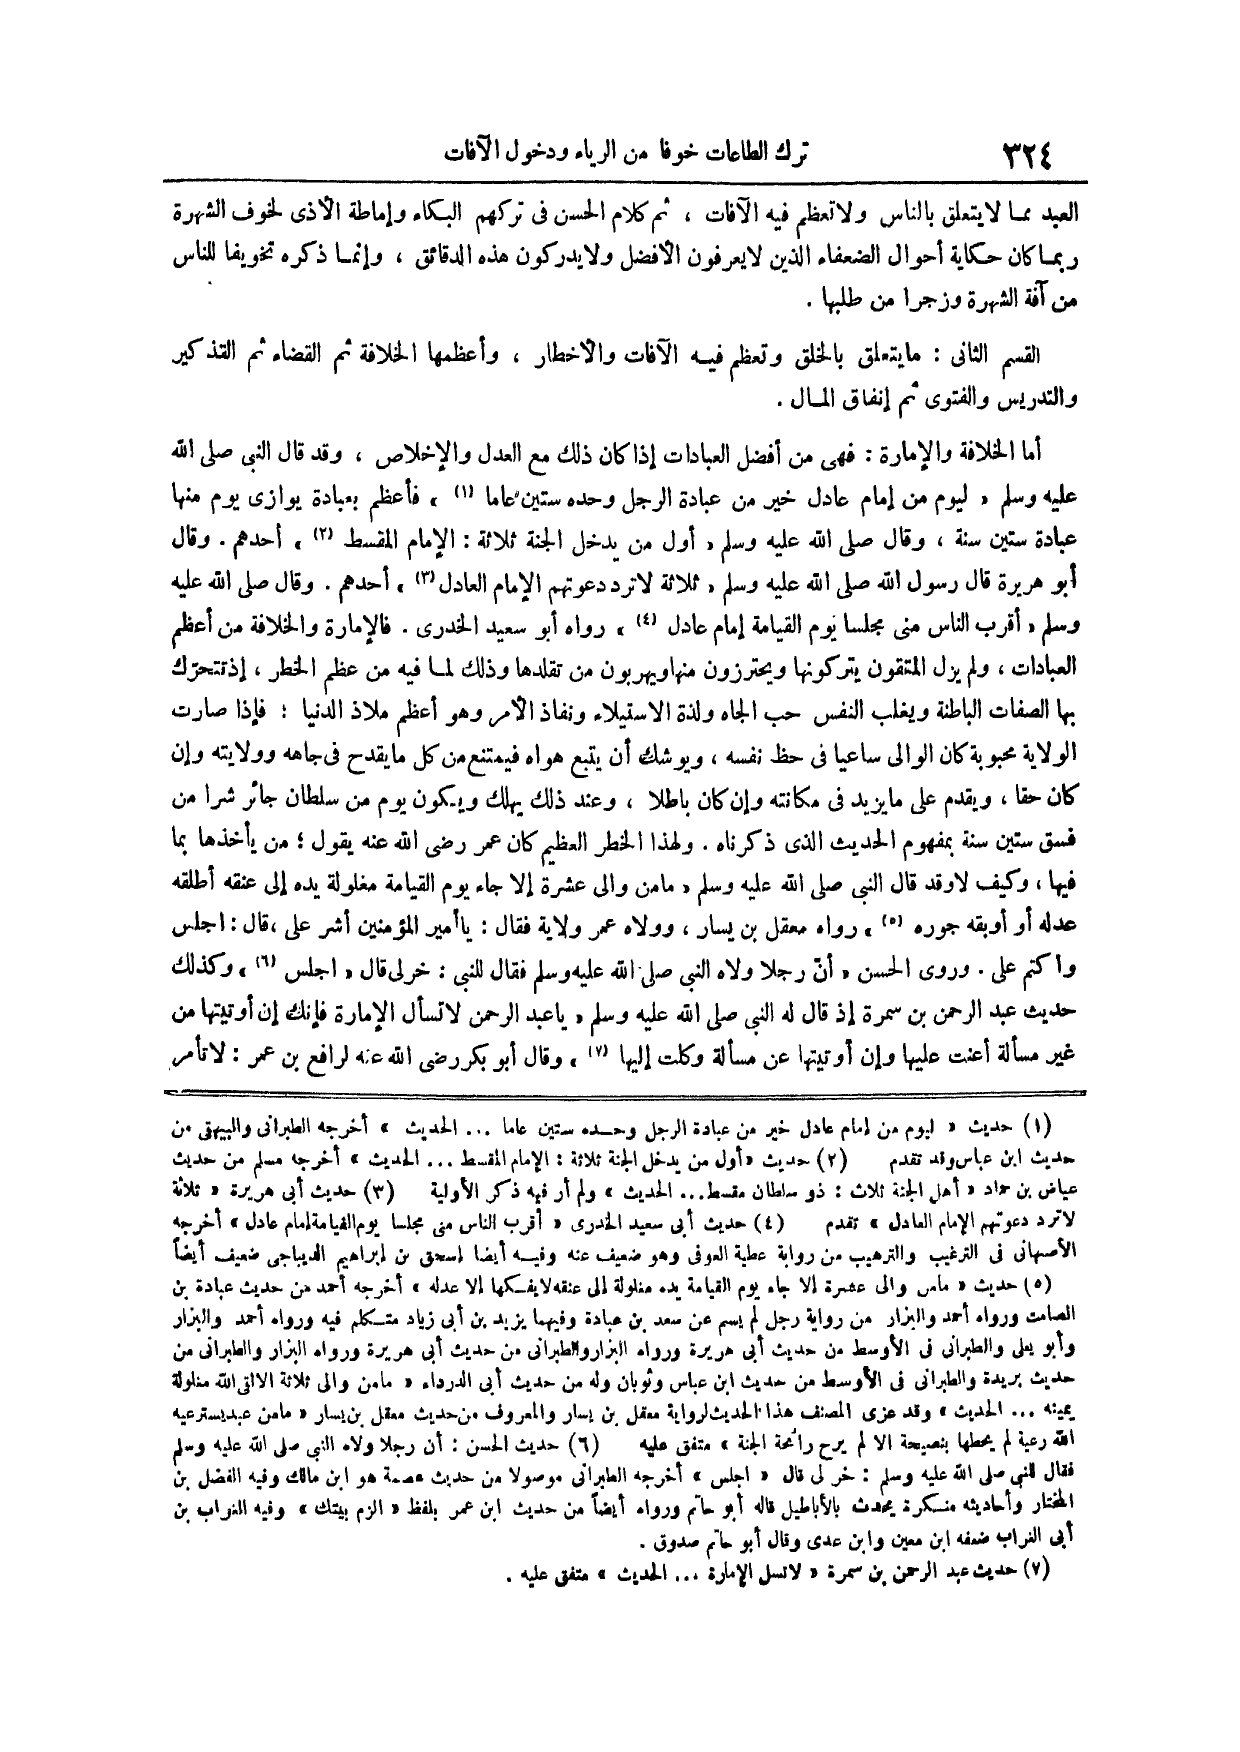 ٣٢٤ ترك الطاعات خوفا من الرياء ودخول الآفات
العبد مما لا يتعلق بالناس ولا تعظم فيه الآفات ، ثم كلام الحسن فى تركهم البكاء وإماطة الأذى لخوف الشهرة
ربما كان حكاية أحوال الضعفاء الذين لا يعرفون الأفضل ولا يدركون هذه الدقائق ، وإنما ذكره تخويفا للناس
من آفة الشهرة وزجرا من طلبها .
القسم الثانى : ما يتعلق بالخلق وتعظم فيه الآفات والأخطار ، وأعظمها الخلافة ثم القضاء ثم التذكير
والتدريس والفتوى ثم إنفاق المال .
أما الخلافة والإمارة : فهى من أفضل العبادات إذا كان ذلك مع العدل والإخلاص ، وقد قال النبى صلى الله
عليه وسلم « ليوم من إمام عادل خير من عبادة الرجل وحده ستين عاما (١) » فأعظم بعبادة يوازى يوم منها
عبادة ستين سنة ، وقال صلى الله عليه وسلم « أول من يدخل الجنة ثلاثة : الإمام المقسط (٢) » أحدهم . وقال
أبو هريرة قال رسول الله صلى الله عليه وسلم « ثلاثة لا ترد دعوتهم الإمام العادل (٣) » أحدهم . وقال صلى الله عليه
وسلم « أقرب الناس منى مجلسا يوم القيامة إمام عادل (٤) » رواه أبو سعيد الخدرى . فالإمارة والخلافة من أعظم
العبادات ، ولم يزل المتقون يتركونها ويحترزون منها ويهربون من تقلدها وذلك لما فيه من عظم الخطر ، إذ تتحرّك
بها الصفات الباطنة ويغلب النفس حب الجاه ولذة الاستيلاء ونفاذ الأمر وهو أعظم ملاذ الدنيا ؛ فإذا صارت
الولاية محبوبة كان الوالى ساعيا فى حظ نفسه ، ويوشك أن يتبع هواه فيمتنع من كل ما يقدح فى جاهه وولايته وإن
كان حقا ، ويقدم على ما يزيد فى مكانته وإن كان باطلا ، وعند ذلك يهلك ويكون يوم من سلطان جائر شرا من
فسق ستين سنة بمفهوم الحديث الذى ذكرناه . ولهذا الخطر العظيم كان عمر رضى الله عنه يقول ؛ من يأخذها بما
فيها ، وكيف لا وقد قال النبى صلى الله عليه وسلم « مامن والى عشرة إلا جاء يوم القيامة مغلولة يده إلى عنقه أطلقه
عدله أو أوبقه جوره (٥) » رواه معقل بن يسار ، وولاه عمر ولاية فقال : يا أمير المؤمنين أشر على ، قال : اجلس
واكتم على . وروى الحسن « أنّ رجلا ولاه النبى صلى الله عليه وسلم فقال للنبى : خر لى قال « اجلس (٦) » وكذلك
حديث عبد الرحمن بن سمرة إذ قال له النبى صلى الله عليه وسلم « يا عبد الرحمن لا تسأل الإمارة فإنك إن أوتيتها من
غير مسألة أعنت عليها وإن أوتيتها عن مسألة وكلت إليها (٧) » وقال أبو بكر رضى الله عنه لرافع بن عمر : لا تأمر
(١) حديث « ليوم من إمام عادل خير من عبادة الرجل وحده ستين عاما ... الحديث » أخرجه الطبرانى والبيهقى من
حديث ابن عباس وقد تقدم (٢) حديث « أول من يدخل الجنة ثلاثة : الإمام المقسط ... الحديث » أخرجه مسلم من حديث
عياض بن حماد « أهل الجنة ثلاث : ذو سلطان مقسط... الحديث » ولم أر فيه ذكر الأولية (٣) حديث أبى هريرة « ثلاثة
لا ترد دعوتهم الإمام العادل » تقدم (٤) حديث أبى سعيد الخدرى « أقرب الناس منى مجلسا يوم القيامة إمام عادل » أخرجه
الأصبهانى فى الترغيب والترهيب من رواية عطية العوفى وهو ضعيف عنه وفيه أيضا إسحق بن إبراهيم الديباجى ضعيف أيضاً
(٥) حديث « مامن والى عشرة إلا جاء يوم القيامة يده مغلولة إلى عنقه لا يفكها إلا عدله » أخرجه أحمد من حديث عبادة بن
الصامت ورواه أحمد والبزار من رواية رجل لم يسم عن سعد بن عبادة وفيهما يزيد بن أبى زياد متكلم فيه ورواه أحمد والبزار
وأبو يعلى والطبرانى فى الأوسط من حديث أبى هريرة ورواه البزار والطبرانى من حديث أبى هريرة ورواه البزار والطبرانى من
حديث بريدة والطبرانى فى الأوسط من حديث ابن عباس وثوبان وله من حديث أبى الدرداء « مامن والى ثلاثة الا لقى الله مغلولة
يمينه ... الحديث » وقد عزى المصنف هذا الحديث لرواية معقل بن يسار والمعروف من حديث معقل بن يسار « مامن عبد يسترعيه
الله رعية لم يحطها بنصيحة الا لم يرح رائحة الجنة » متفق عليه (٦) حديث الحسن : أن رجلا ولاه النبى صلى الله عليه وسلم
فقال للنبى صلى الله عليه وسلم : خر لى قال « اجلس » أخرجه الطبرانى موصولا من حديث عصمة هو ابن مالك وفيه الفضل بن
المختار وأحاديثه منكرة يحدث بالأباطيل قاله أبو حاتم ورواه أيضاً من حديث ابن عمر بلفظ « الزم بيتك » وفيه الغراب بن
أبى الغراب ضعفه ابن معين وابن عدى وقال أبو حاتم صدوق .
(٧) حديث عبد الرحمن بن سمرة « لا تسل الإمارة ... الحديث » متفق عليه .